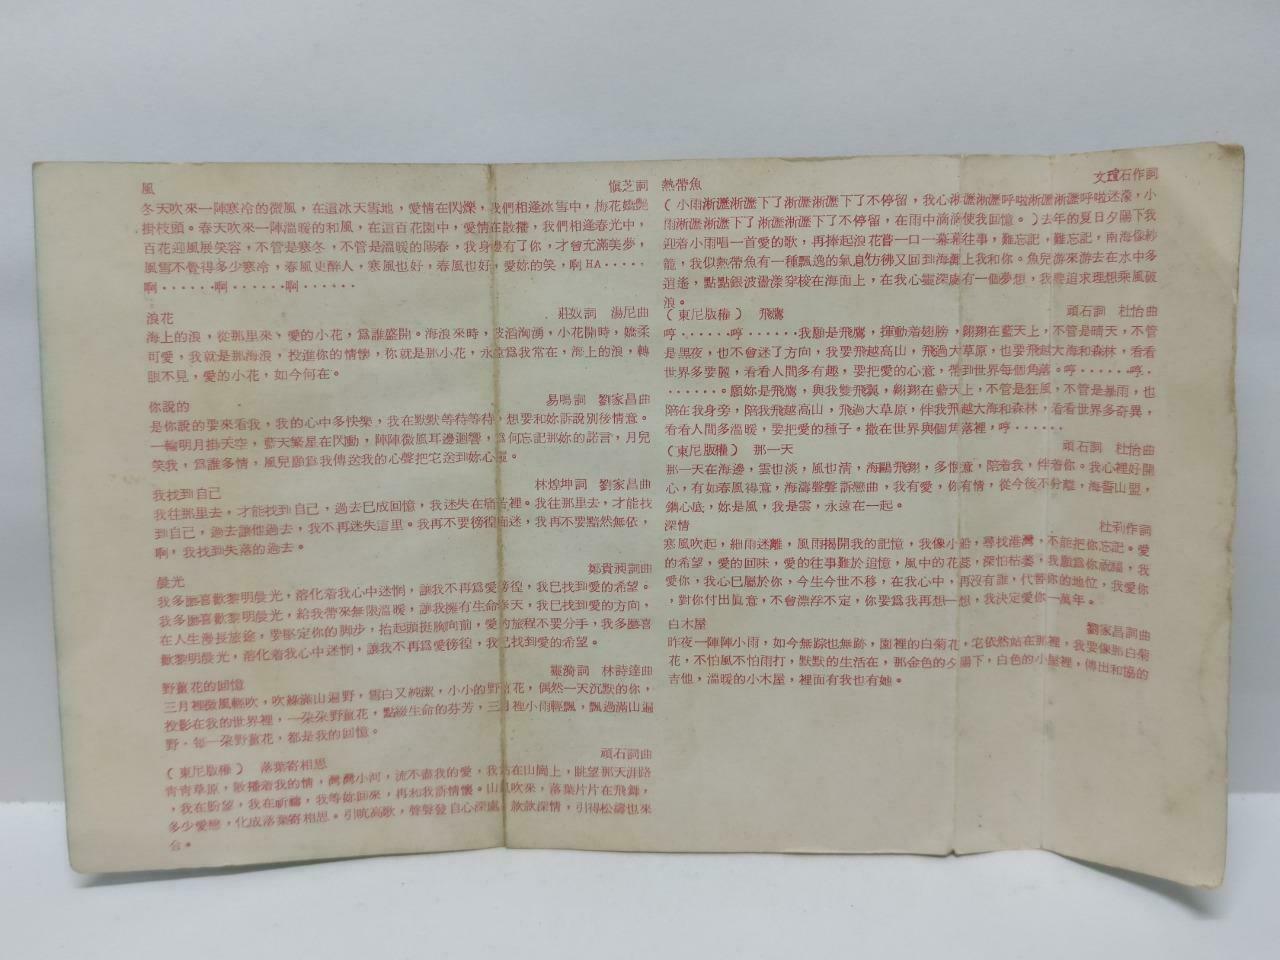 風　慎芝詞
冬天吹來一陣寒冷的微風，在這冰天雪地，愛情在閃爍，我們相逢冰雪中，梅花嬌艷
掛枝頭。春天吹來一陣溫暖的和風，在這百花園中，愛情在散播，我們相逢春光中，
百花迎風展笑容，不管是寒冬，不管是溫暖的陽春，我身邊有了你，才會充滿美夢，
風雪不覺得多少寒冷，春風更醉人，寒風也好，春風也好，愛妳的笑，啊HA‧‧‧‧‧
啊‧‧‧‧‧‧啊‧‧‧‧‧‧啊‧‧‧‧‧‧
浪花　莊奴詞　湯尼曲
海上的浪，從那里來、愛的小花，為誰盛開。海浪來時，波滔洶湧，小花開時，嬌柔
可愛，我就是那海浪，投進你的情懷，你就是那小花，永遠為我常在，海上的浪，轉
眼不見，愛的小花，如今何在。
你說的　易鳴詞　劉家昌曲
是你說的要來看我，我的心中多快樂，我在默默等待等待，想要和妳訴說別後情意。
一輪明月掛天空，藍天繁星在閃動，陣陣微風耳邊迴響，為何忘記那妳的諾言，月兒
笑我，為誰多情，風兒願為我傳送我的心聲把它送到妳心靈。
我找到自己　林煌坤詞　劉家昌曲
我往那里去，才能找到自己，過去已成回憶，我迷失在痛苦裡。我往那里去，才能找
到自己，過去讓他過去，我不再迷失這里。我再不要徬徨面迷，我再不要黯然無依，
啊，我找到失落的過去。
晨光　鄭貴昶詞曲
我多麼喜歡黎明晨光，溶化着我心中迷惘，讓我不再為愛徬徨，我已找到愛的希望。
我多麼喜歡黎明晨光，給我帶來無限溫暖，讓我擁有生命春天，我已找到愛的方向，
在人生漫長旅途，要堅定你的脚步，抬起頭挺胸向前，愛的旅程不要分手，我多麼喜
歡黎明晨光，溶化着我心中迷惘，讓我不再為愛徬徨，我已找到愛的希望。
野薑花的回憶　靈漪詞　林詩達曲
三月裡微風輕吹，吹綠滿山遍野，雪白又純潔，小小的野薑花，偶然一天沉默的你，
投影在我的世界裡，一朵朵野薑花，點綴生命的芬芳，三月裡小雨輕飄，飄過滿山遍
野‧每一朵野薑花，都是我的回憶。
（東尼版權）　落葉寄相思　頑石詞曲
青青草原，散播着我的情，彎彎小河，流不盡我的愛，我站在山崗上，眺望那天涯路
，我在盼望，我在祈禱，我等妳回來，再和我訴情懷。山風吹來，落葉片片在飛舞，
多少愛戀，化成落葉寄相思。引吭高歌，聲聲發自心深處。款款深情，引得松濤也來
合。
熱帶魚　文瑄石作詞
（小雨淅瀝淅瀝下了淅瀝淅瀝下了不停留，我心淅瀝淅瀝呼啦淅瀝淅瀝呼啦迷濛，小
雨淅瀝淅瀝下了淅瀝淅瀝下了不停留，在雨中滴滴使我回憶。）去年的夏日夕陽下我
迎着小雨唱一首愛的歌，再捧起浪花嘗一口一幕幕往事，難忘記，難忘記，南海像紗
籠，我似熱帶魚有一種飄逸的氣息彷彿又回到海灘上我和你。魚兒游來游去在水中多
逍遙，點點銀波盪漾穿梭在海面上，在我心靈深處有一個夢想，我要追求理想乘風破
浪。
（東尼版權）　飛鷹　頑石詞　杜怡曲
哼‧‧‧‧‧‧哼‧‧‧‧‧‧我願是飛鷹，揮動着翅膀，翱翔在藍天上，不管是晴天，不管
是黑夜，也不會迷了方向，我要飛越高山，飛過大草原，也要飛越大海和森林，看看
世界多耍麗，看看人間多有趣，要把愛的心意，帶到世界每個角落。哼‧‧‧‧‧‧哼‧
‧‧‧‧‧‧。願妳是飛鷹，與我雙飛翼，翱翔在藍天上，不管是狂風，不管是暴雨，也
陪在我身旁，陪我飛越高山，飛過大草原，伴我飛越大海和森林，看看世界多奇異，
看看人間多溫暖，要把愛的種子。撒在世界與個角落裡，哼‧‧‧‧‧‧
（東尼版權）　那一天　頑石詞　杜怡曲
那一天在海邊，雲也淡，風也清，海鷗飛翔，多恨意，陪着我，伴着你。我心裡好開
心，有如春風得意，海濤聲聲訴戀曲，我有愛，你有情，從今後不分離，海誓山盟，
鐫心底，妳是風，我是雲，永遠在一起。
深情　杜莉作詞
寒風吹起，細雨迷離，風雨揭開我的記憶，我像小船，尋找港灣，不能把你忘記。愛
的希望，愛的回味，愛的往事難於追憶，風中的花蕊，深怕枯萎，我願為你祝福，我
愛你，我心已屬於你，今生今世不移，在我心中，再沒有誰，代替你的地位，我愛你
，對你付出眞意，不會漂浮不定，你要為我再想一想，我決定愛你一萬年。
白木屋　劉家昌詞曲
昨夜一陣陣小雨，如今無踪也無跡，園裡的白菊花，宅依然站在那裡，我要像那白菊
花，不怕風不怕雨打，默默的生活在，那金色的夕陽下，白色的小屋裡，傳出和協的
吉他，溫暖的小木屋，裡面有我也有她。